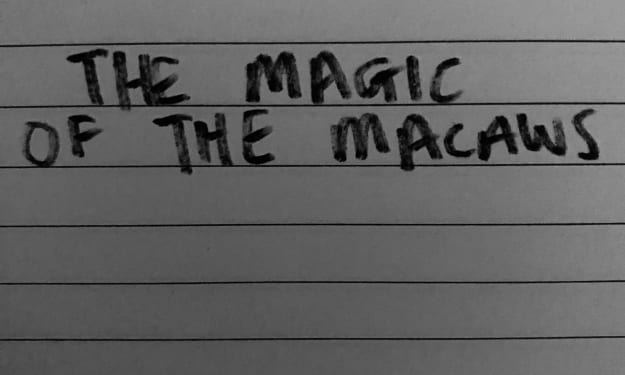 THE MAGIC
OF THE MACAWS